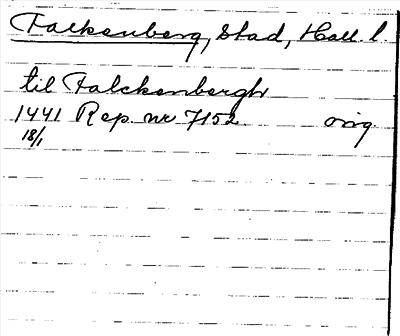 Falkenberg, Stad, Hall. l.
til Falckenbergh
1441 Rep. nr 7152 orig.
18/1